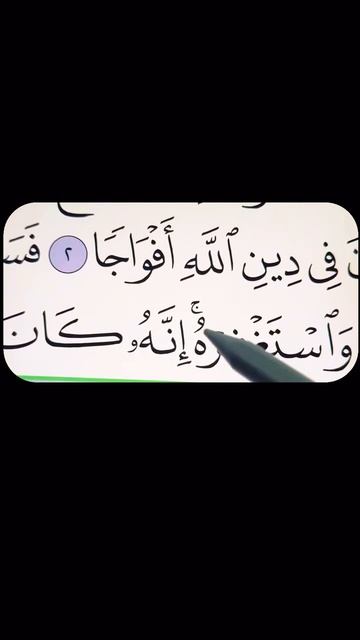 فِى دِينِ ٱللَّهِ أَفْوَاجًا ٢
وَٱسْتَغْفِرْهُ ۚ إِنَّهُۥ كَانَ